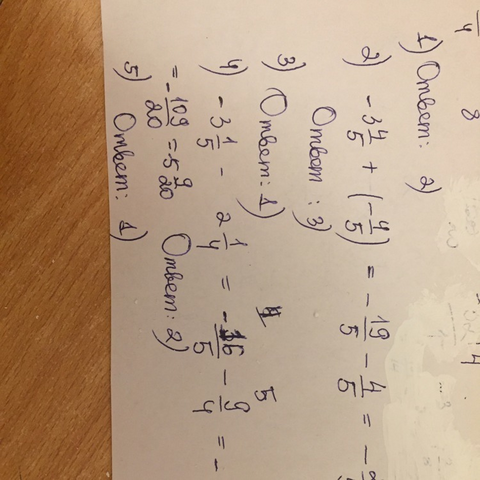 1) Ответ: 2)
2) -3 4/5 + (-4/5) = -19/5 - 4/5 = -
Ответ: 3)
3) Ответ: 1)
4) -3 1/5 - 2 1/4 = -16/5 - 9/4 = -
= -109/20 = -5 9/20 Ответ: 2)
5) Ответ: 1)